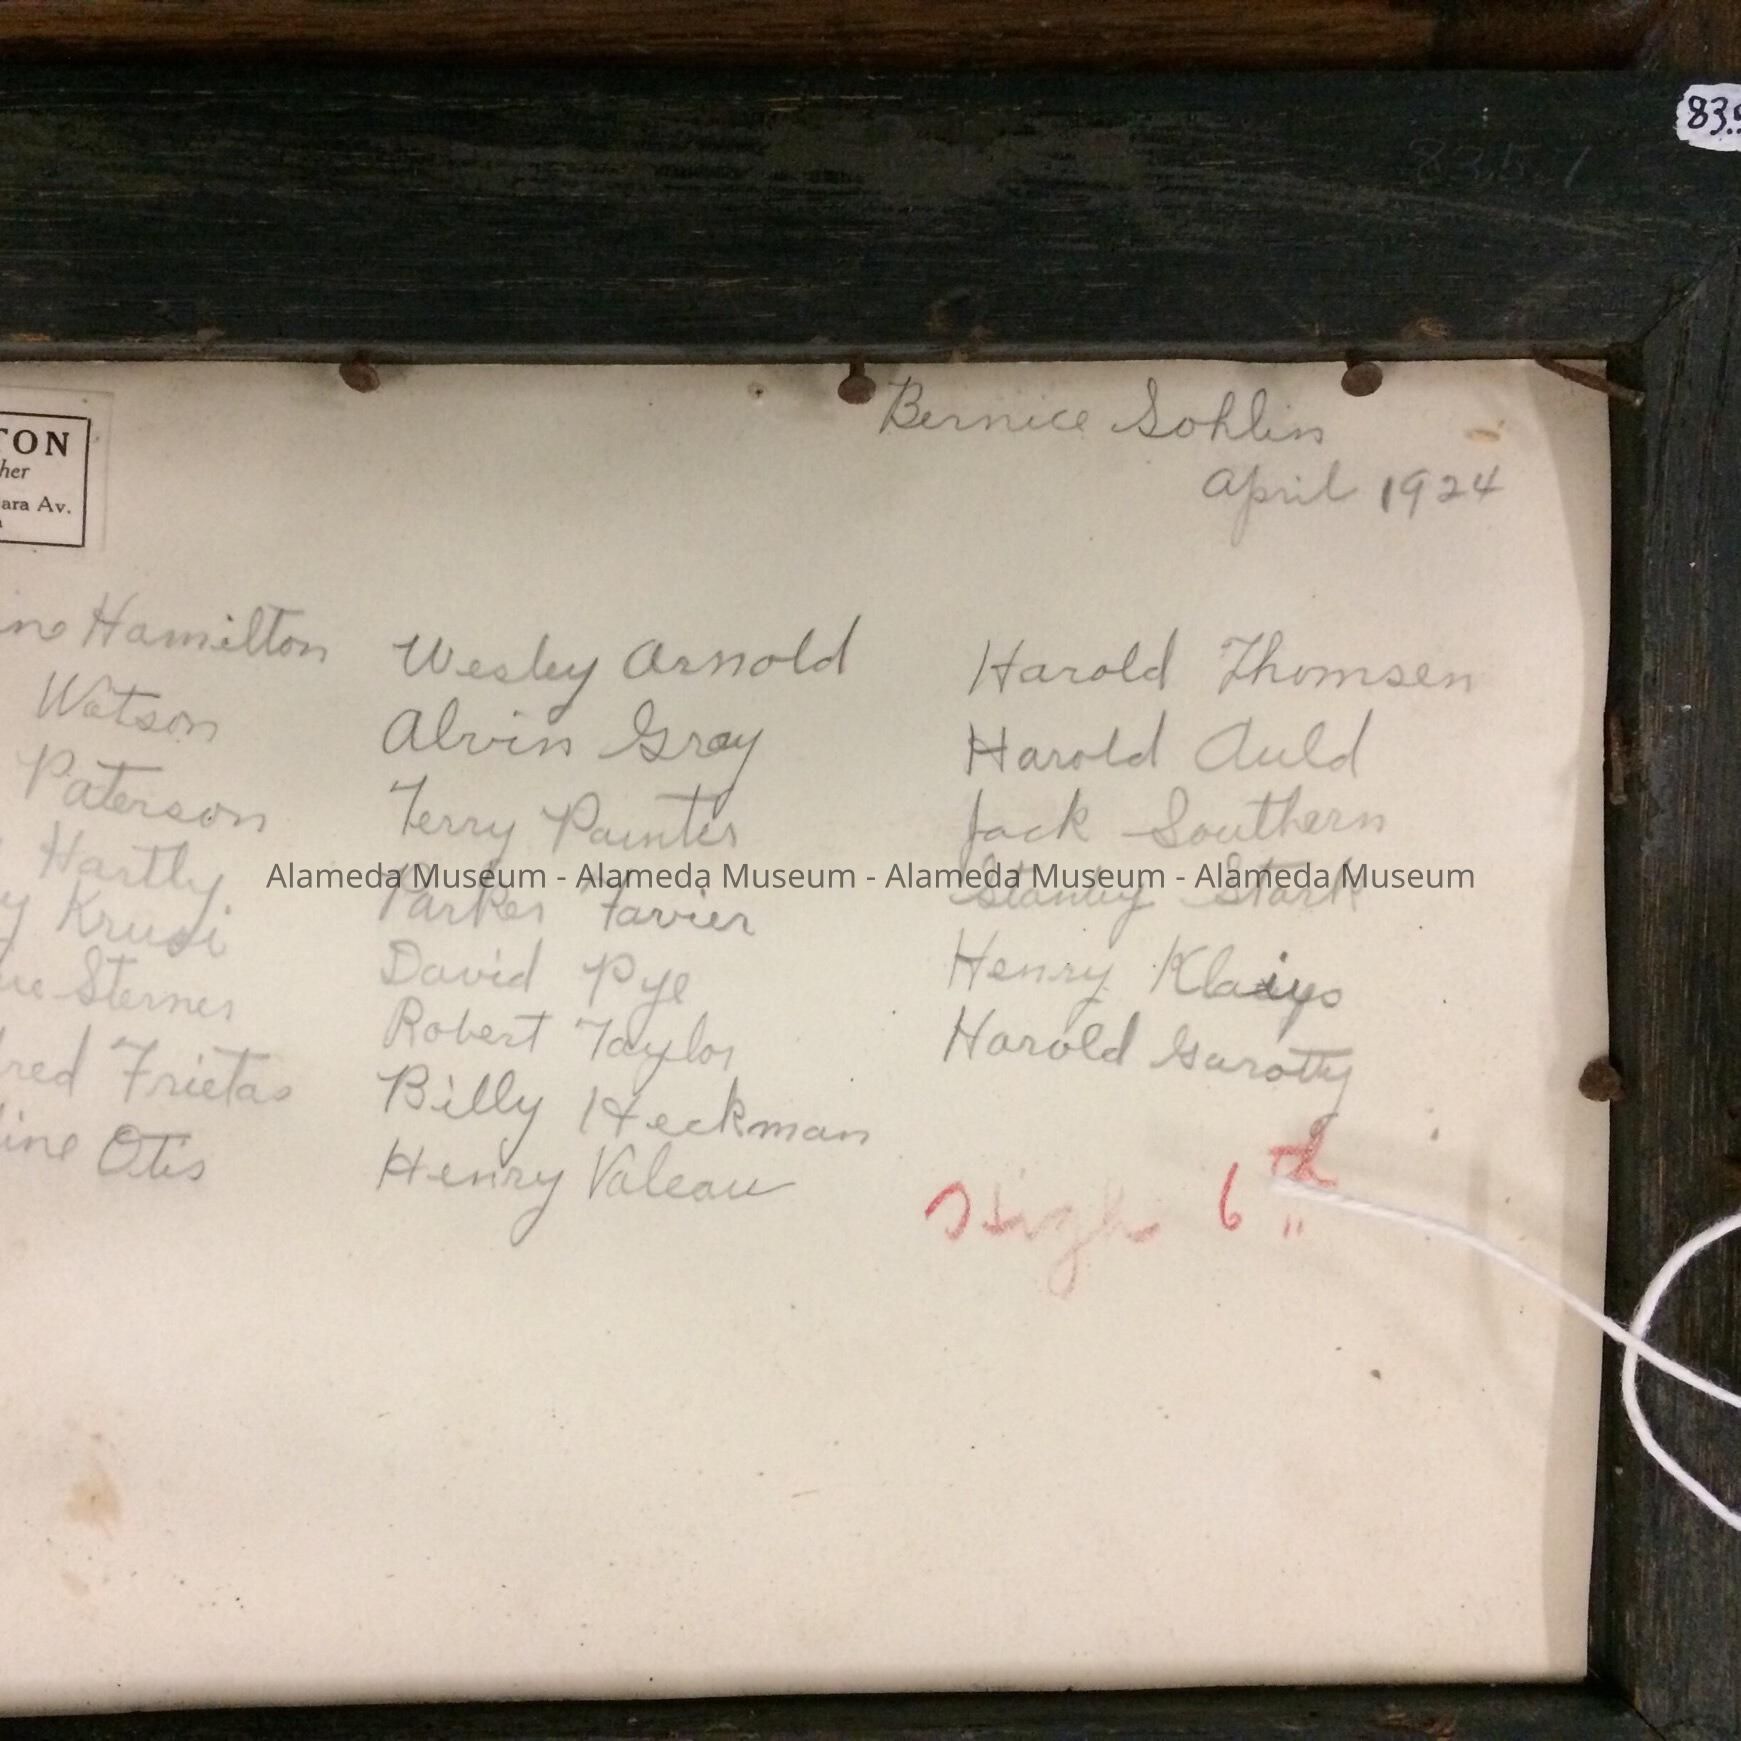 83.5
83.5.7
Bernice Sohlin
April 1924
TON
her
ara Av.
Hamilton
Watson
Paterson
Hartly
y Krusi
ue Sternes
red Frietas
line Otis
Wesley Arnold
Alvin Gray
Terry Painter
Parker Favier
David Pye
Robert Taylor
Billy Heckman
Henry Valeau
Harold Thomsen
Harold Auld
Jack Southern
Stanley Stark
Henry Klaiys
Harold Garotty
High 6th
Alameda Museum - Alameda Museum - Alameda Museum - Alameda Museum